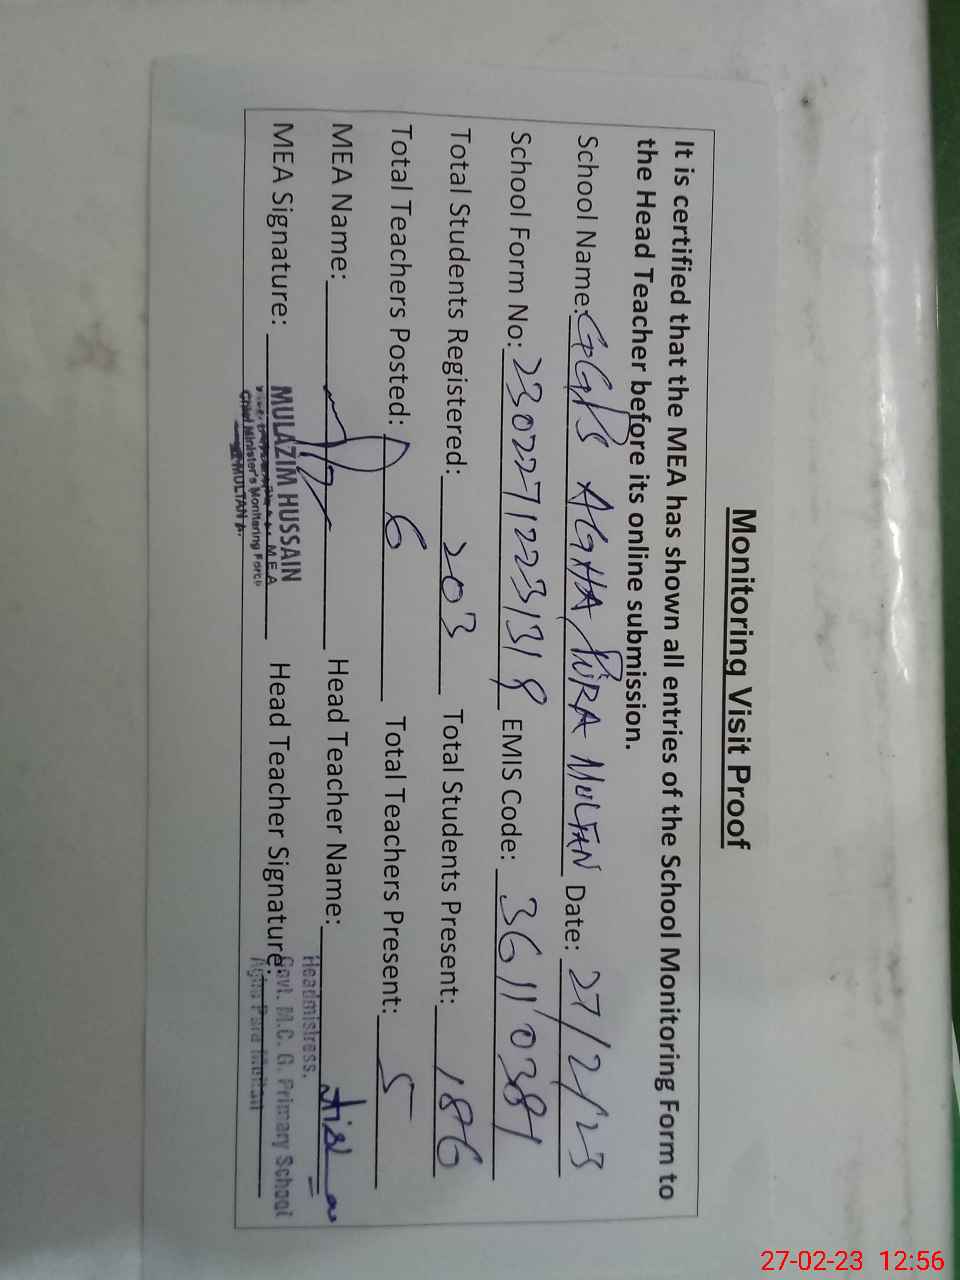 Monitoring Visit Proof
It is certified that the MEA has shown all entries of the School Monitoring Form to
the Head Teacher before its online submission.
School Name: GGPS AGHA PURA MULTAN Date: 27/2/23
School Form No: 23022712231318 EMIS Code: 36110381
Total Students Registered: 203 Total Students Present: 186
Total Teachers Posted: 6 Total Teachers Present: 5
MEA Name: Head Teacher Name:
MEA Signature: Head Teacher Signature:
MULAZIM HUSSAIN
M E A
Chief Minister's Monitoring Force
MULTAN
Headmistress.
Govt. M.C. G. Primary School
Agha Pura Multan
27-02-23 12:56